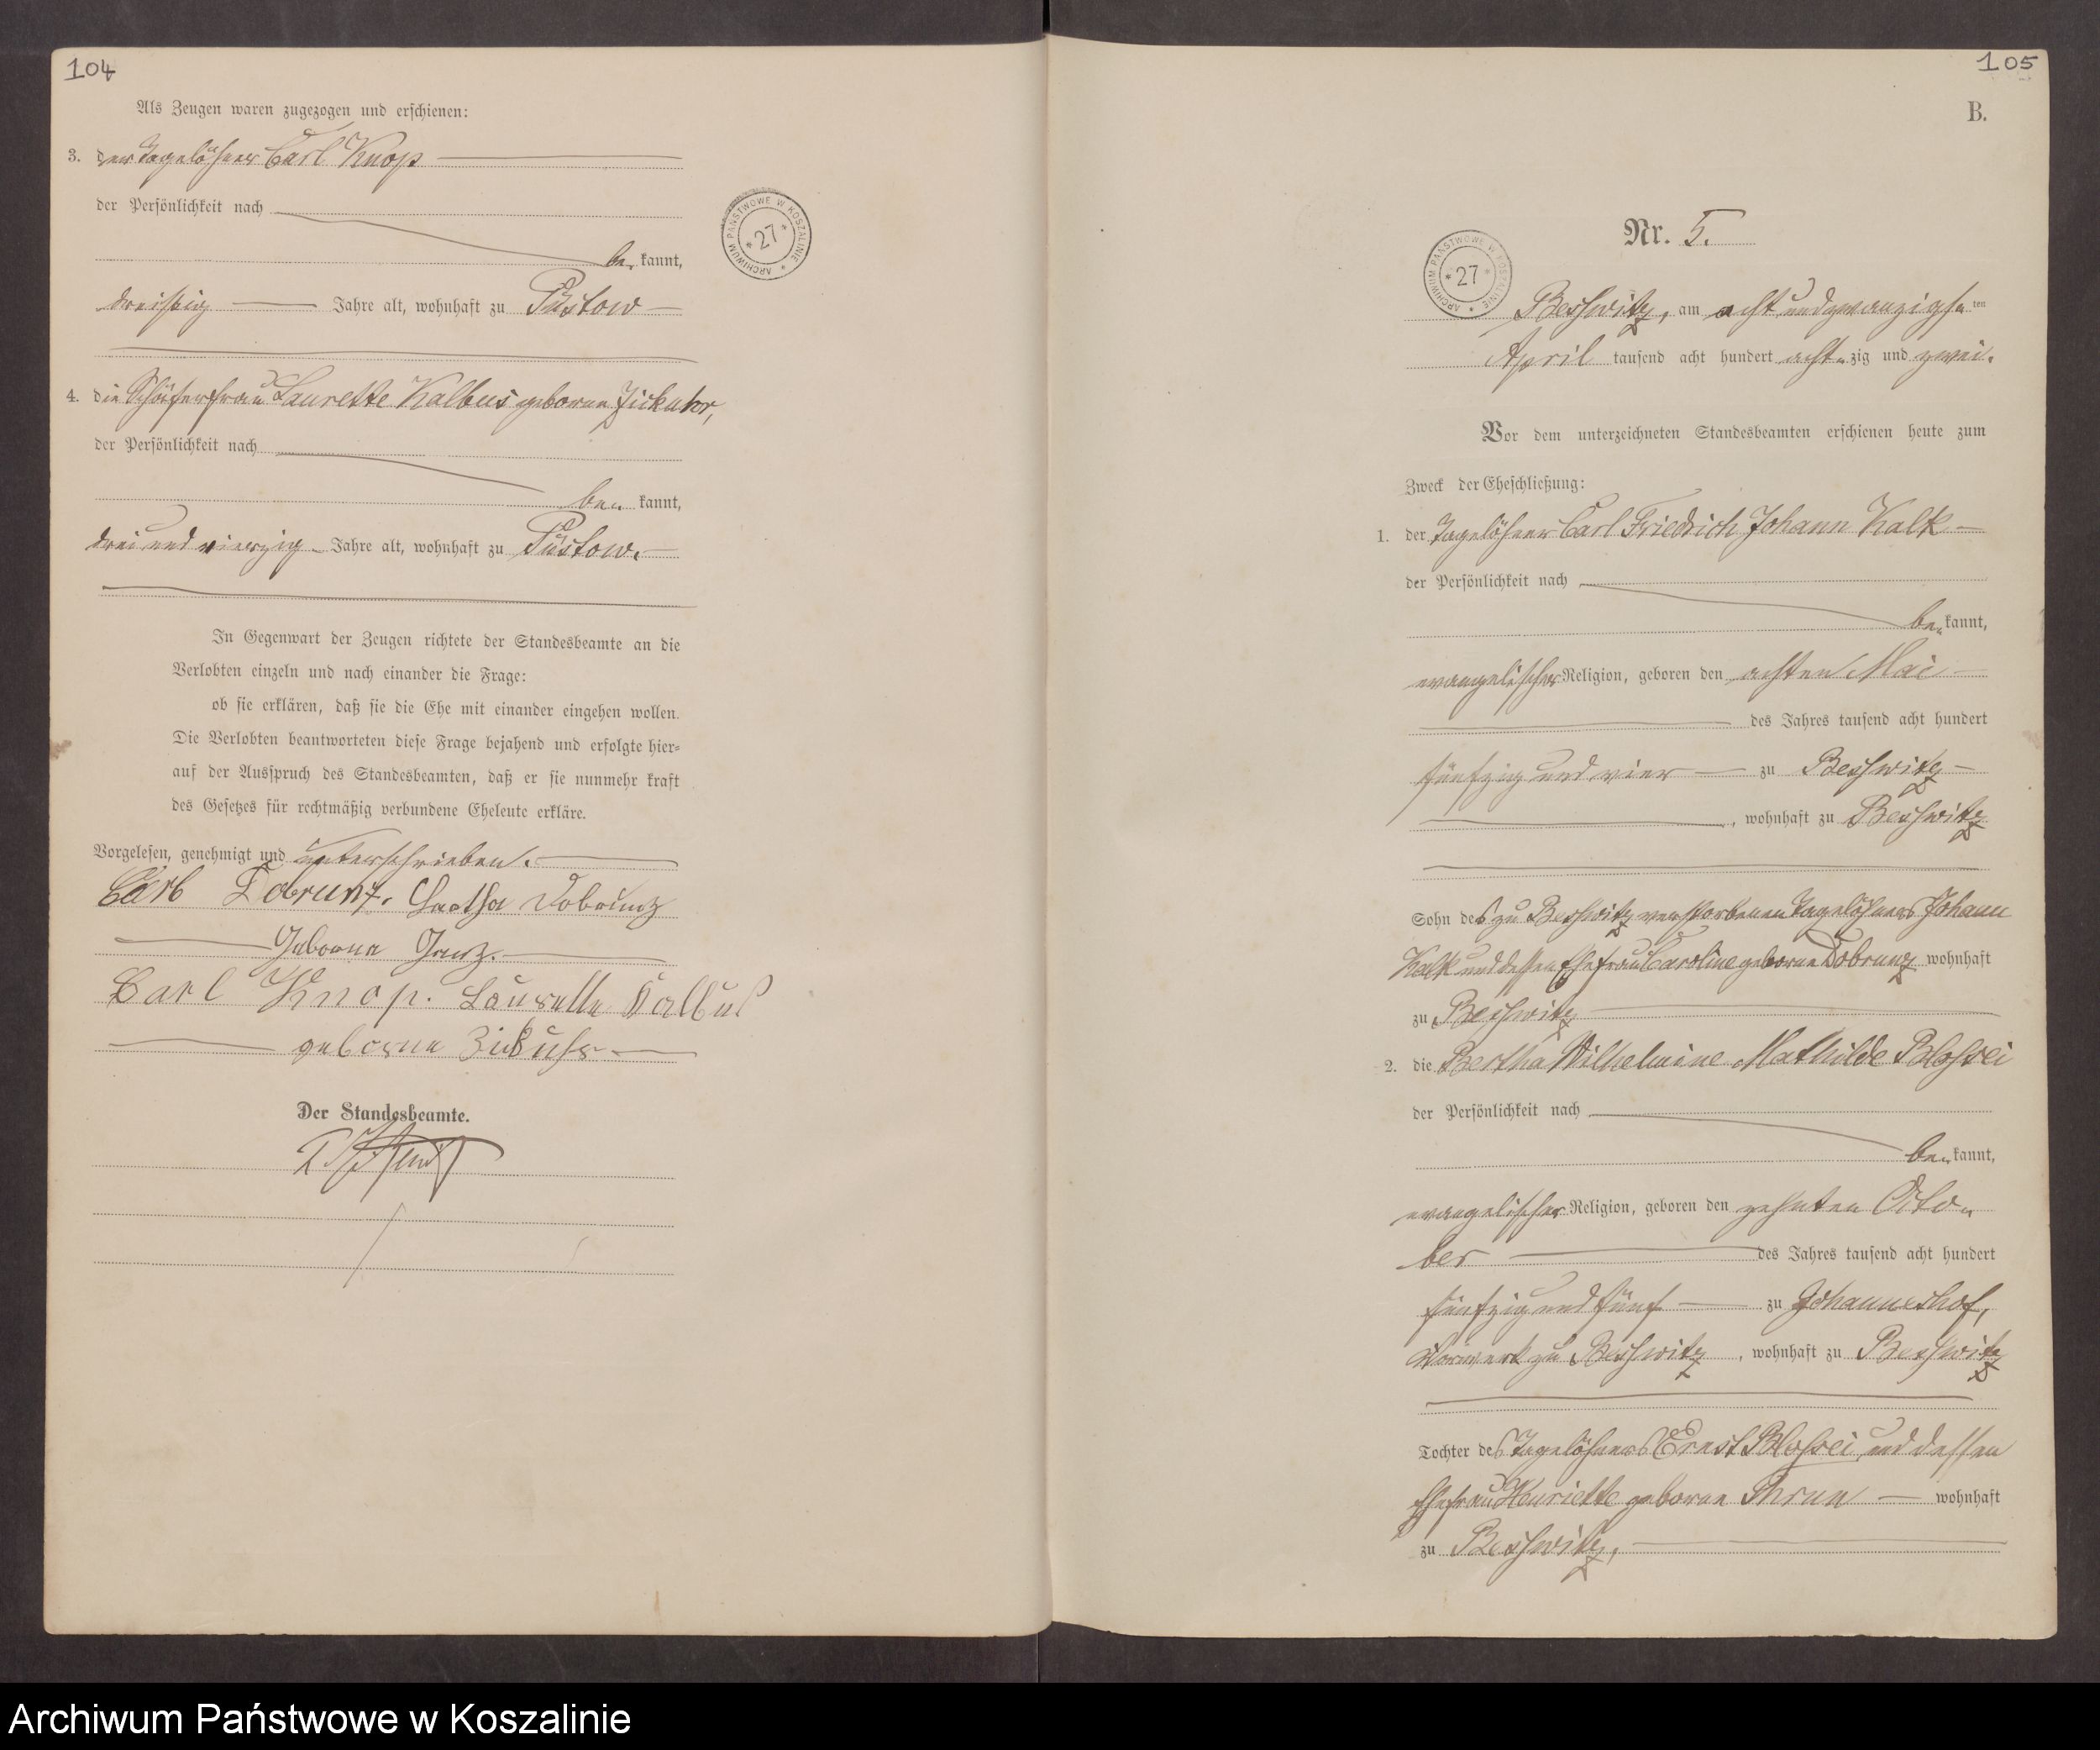 104
Als Zeugen waren zugezogen und erschienen:
3. der Tagelöhner Carl Knop
der Persönlichkeit nach
be- kannt,
dreißig Jahre alt, wohnhaft zu Püstow
4. die Schäferfrau Laurette Kalbus geborne Zickuhr,
der Persönlichkeit nach
be- kannt,
drei und vierzig Jahre alt, wohnhaft zu Püstow.
In Gegenwart der Zeugen richtete der Standesbeamte an die
Verlobten einzeln und nach einander die Frage:
ob sie erklären, daß sie die Ehe mit einander eingehen wollen.
Die Verlobten beantworteten diese Frage bejahend und erfolgte hier-
auf der Ausspruch des Standesbeamten, daß er sie nunmehr kraft
des Gesetzes für rechtmäßig verbundene Eheleute erkläre.
Vorgelesen, genehmigt und unterschrieben.
Carl Dobrunz. Dobrunz
Geborne
Carl Knop. Laurette Kalbus
geborne Zickuhr
Der Standesbeamte.
ARCHIWUM PAŃSTWOWE W KOSZALINIE * 27 *
105
B.
Nr. 5.
ARCHIWUM PAŃSTWOWE W KOSZALINIE * 27 *
Besswitz, am acht und zwanzigst- ten
April tausend acht hundert acht- zig und zwei.
Vor dem unterzeichneten Standesbeamten erschienen heute zum
Zweck der Eheschließung:
1. der Tagelöhner Carl Friedrich Johann Kalk
der Persönlichkeit nach
be- kannt,
evangelischer Religion, geboren den achten Mai
des Jahres tausend acht hundert
fünfzig und vier zu Besswitz
, wohnhaft zu Besswitz
Sohn des zu Besswitz verstorbenen Tagelöhners Johann
Kalk und dessen Ehefrau Caroline geborne Dobrunz wohnhaft
zu Besswitz
2. die Bertha Wilhelmine Mathilde Blossei
der Persönlichkeit nach
be- kannt,
evangelischer Religion, geboren den zehnten Octo-
ber des Jahres tausend acht hundert
fünfzig und fünf zu Johanneshof,
Vorwerk zu Besswitz, wohnhaft zu Besswitz
Tochter des Tagelöhners Ernst Blossei und dessen
Ehefrau Henriette geborne wohnhaft
zu Besswitz,
Archiwum Państwowe w Koszalinie